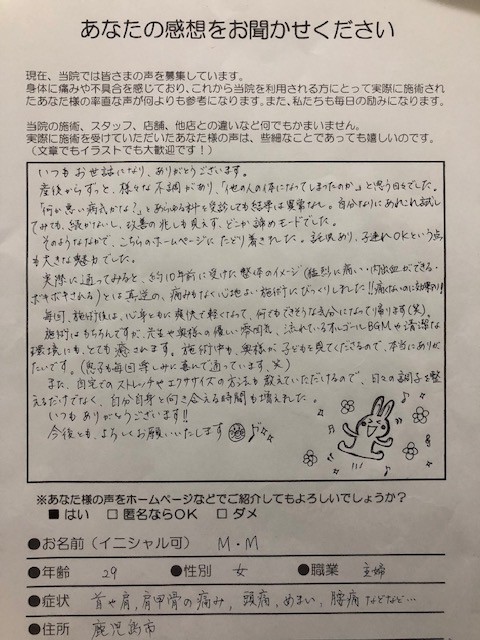 あなたの感想をお聞かせください
現在、当院では皆さまの声を募集しています。
身体に痛みや不具合を感じており、これから当院を利用される方にとって実際に施術され
たあなた様の率直な声が何よりも参考になります。また、私たちも毎日の励みになります。
当院の施術、スタッフ、店舗、他店との違いなど何でもかまいません。
実際に施術を受けていただいたあなた様の声は、些細なことであっても嬉しいのです。
（文章でもイラストでも大歓迎です！）
いつもお世話になり、ありがとうございます。
産後からずっと、様々な不調があり、「他の人の体になってしまったのか」と思う日々でした。
「何か悪い病気かな？」とあらゆる科を受診しても結果は異常なし。自分なりにあれこれ試し
てみても、続かないし、改善の兆しも見えず、どこか諦めモードでした。
そのようななかで、こちらのホームページにたどり着きました。託児あり、子連れOKという点
も大きな魅力でした。
実際に通ってみると、約10年前に受けた整体のイメージ（猛烈に痛い・内出血ができる・
ボキボキされる）とは真逆の、痛みもなく心地よい施術にびっくりしました!!痛くないのに効果あり!!
毎回、施術後は、心身ともに爽快で軽くなって、何でもできそうな気分になって帰ります(笑)。
施術はもちろんですが、先生や奥様の優しい雰囲気、流れているオルゴールBGMや清潔な
環境にも、とても癒されます。施術中も、奥様が子どもを見てくださるので、本当にありが
たいです。（息子も毎回楽しみに喜んで通っています、笑）
また、自宅でのストレッチやエクササイズの方法も教えていただけるので、日々の調子を整
えるだけでなく、自分自身と向き合える時間も増えました。
いつもありがとうございます!!
今後とも、よろしくお願いいたします
※あなた様の声をホームページなどでご紹介してもよろしいでしょうか？
■ はい □ 匿名ならOK □ ダメ
●お名前（イニシャル可） M・M
●年齢 29 ●性別 女 ●職業 主婦
●症状 首や肩、肩甲骨の痛み、頭痛、めまい、腰痛などなど…
●住所 鹿児島市